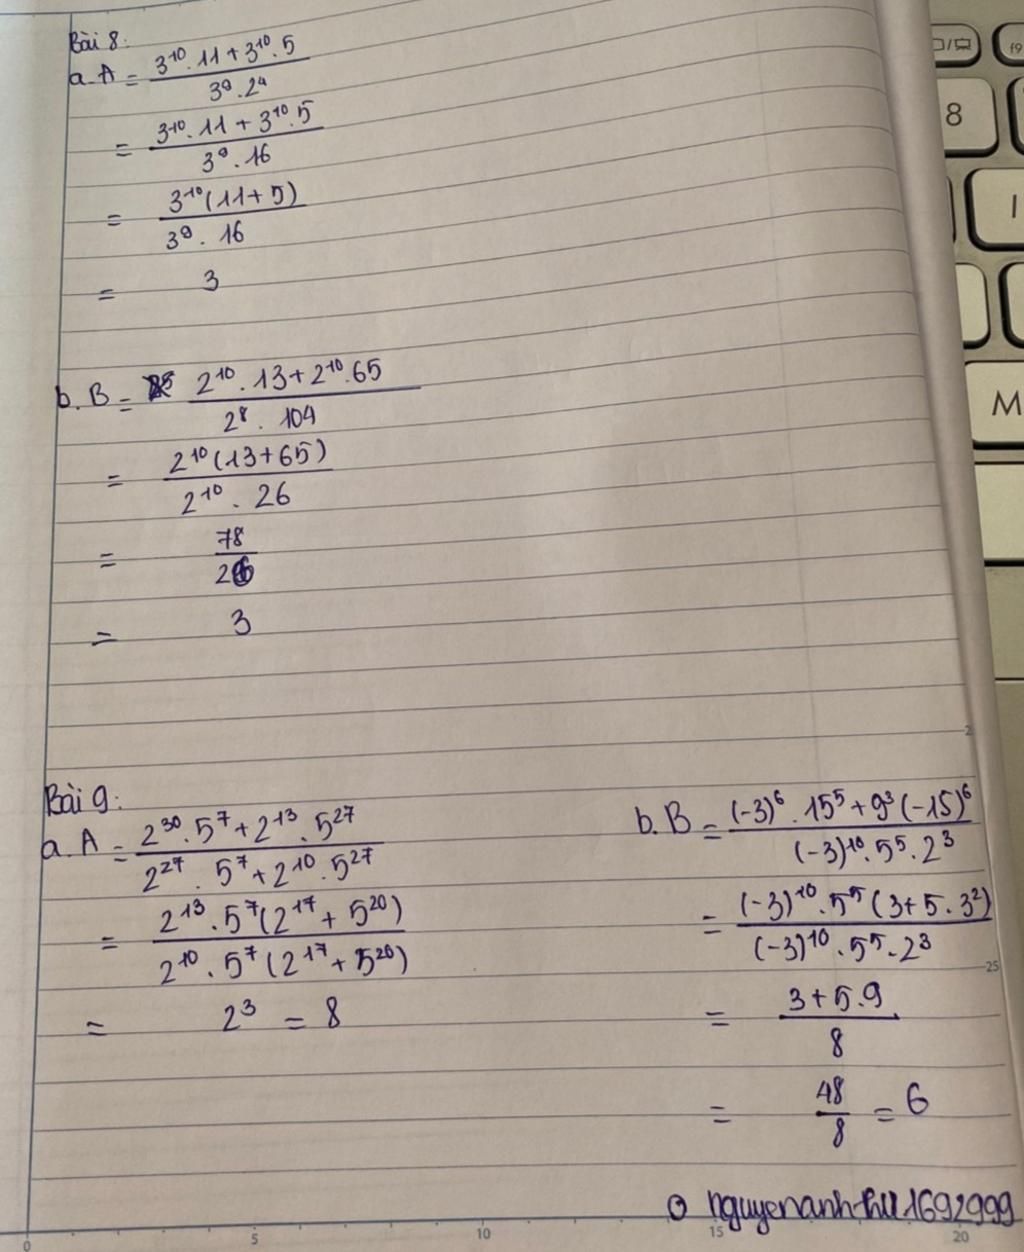 Bài 8:
a. A = \frac{3^{10}.11 + 3^{10}.5}{3^9.2^4}
= \frac{3^{10}.11 + 3^{10}.5}{3^9.16}
= \frac{3^{10}(11+5)}{3^9.16}
= 3
b. B = \frac{2^{10}.13 + 2^{10}.65}{2^8.104}
= \frac{2^{10}(13+65)}{2^{10}.26}
= \frac{78}{26}
= 3
Bài 9:
a. A = \frac{2^{30}.5^7 + 2^{13}.5^{27}}{2^{27}.5^7 + 2^{10}.5^{27}}
= \frac{2^{13}.5^7(2^{17} + 5^{20})}{2^{10}.5^7(2^{17} + 5^{20})}
= 2^3 = 8
b. B = \frac{(-3)^6.15^5 + 9^3(-15)^6}{(-3)^{10}.5^5.2^3}
= \frac{(-3)^{10}.5^5(3+5.3^2)}{(-3)^{10}.5^5.2^3}
= \frac{3+5.9}{8}
= \frac{48}{8} = 6
2
25
0 5 10 15 20
8
f9
I
M